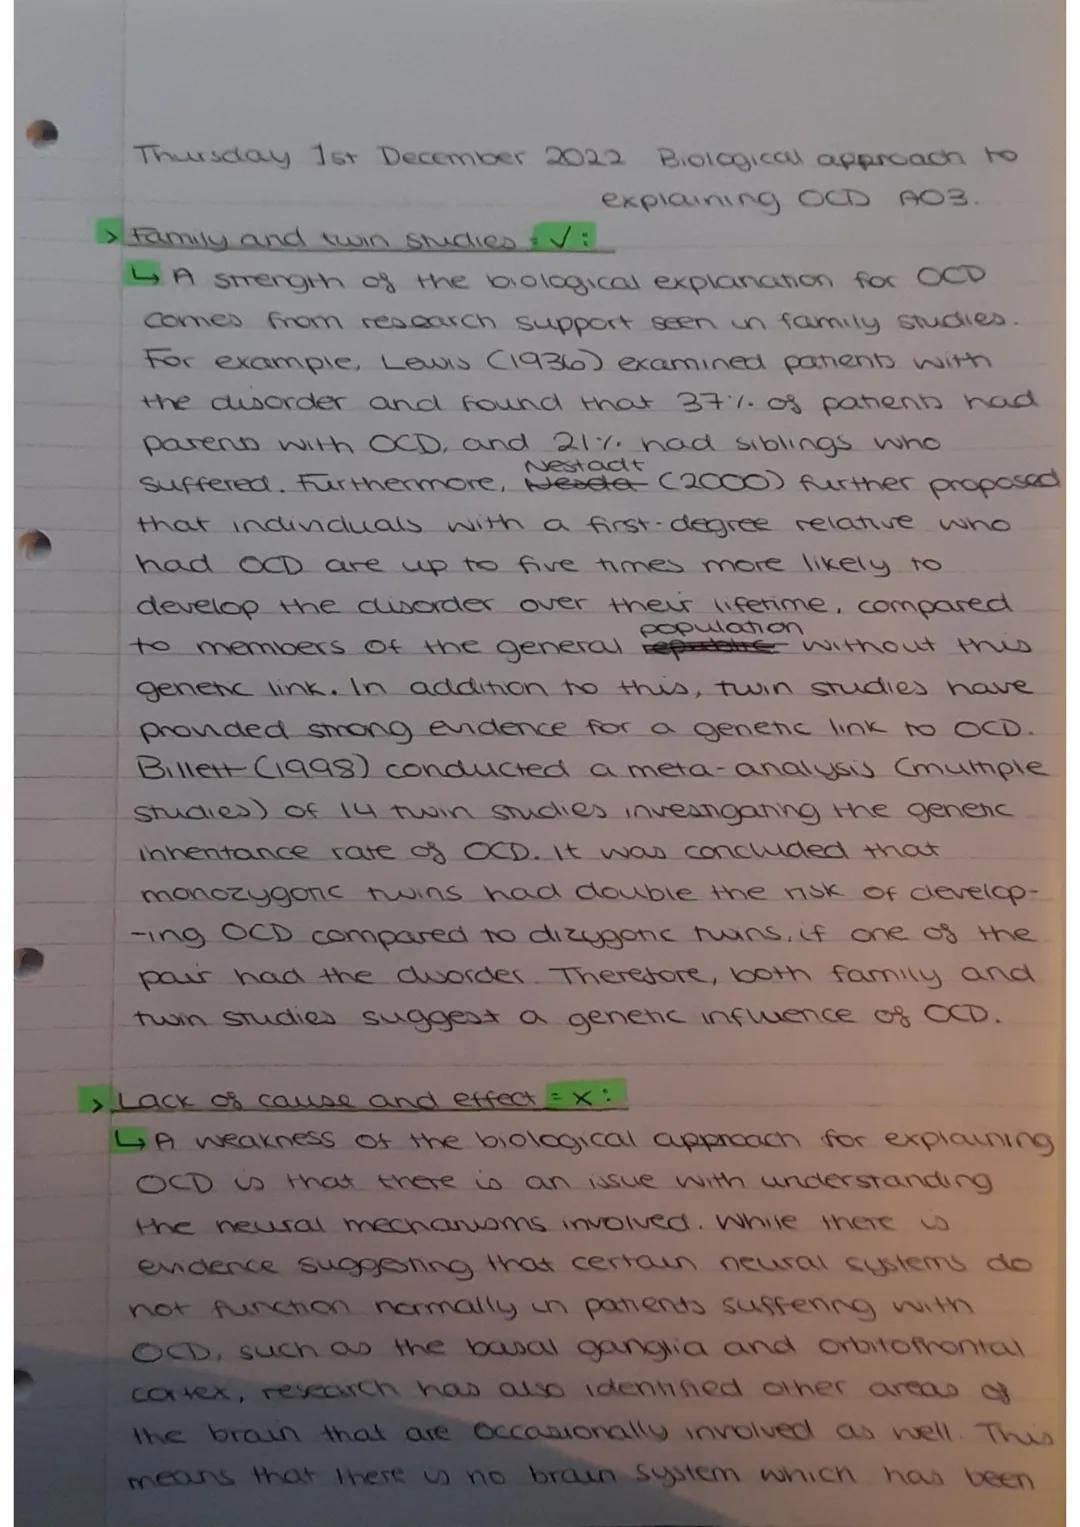 Thursday 1st December 2022 Biological approach to
explaining OCD AO3.
> Family and twin studies = ✓:
↳ A strength of the biological explanation for OCD
comes from research support seen in family studies.
For example, Lewis (1936) examined patients with
the disorder and found that 37% of patients had
parents with OCD, and 21% had siblings who
Nestadt
suffered. Furthermore, Nesda (2000) further proposed
that individuals with a first-degree relative who
had OCD are up to five times more likely to
develop the disorder over their lifetime, compared
population
to members of the general without this
genetic link. In addition to this, twin studies have
provided strong evidence for a genetic link to OCD.
Billett (1998) conducted a meta-analysis (multiple
studies) of 14 twin studies investigating the genetic
inheritance rate of OCD. It was concluded that
monozygotic twins had double the risk of develop-
-ing OCD compared to dizygotic twins, if one of the
pair had the disorder. Therefore, both family and
twin studies suggest a genetic influence of OCD.
> Lack of cause and effect = x:
↳ A weakness of the biological approach for explaining
OCD is that there is an issue with understanding
the neural mechanisms involved. While there is
evidence suggesting that certain neural systems do
not function normally in patients suffering with
OCD, such as the basal ganglia and orbitofrontal
cortex, research has also identified other areas of
the brain that are occasionally involved as well. This
means that there is no brain system which has been